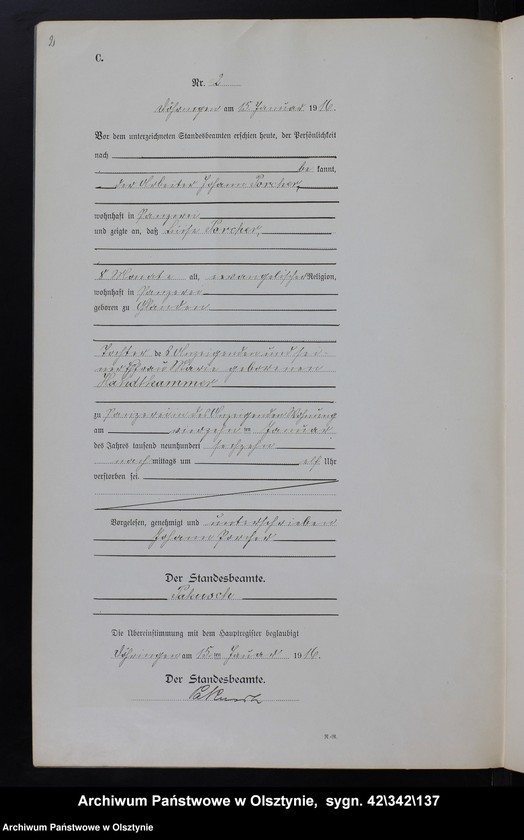 2
C.
Nr. 2
Döhringen am 15 Januar 1916.
Vor dem unterzeichneten Standesbeamten erschien heute, der Persönlichkeit
nach
be kannt,
der Arbeiter Johann Porcher,
wohnhaft in Panzerei
und zeigte an, daß Luise Porcher,
8 Monate alt, evangelischer Religion,
wohnhaft in Panzerei
geboren zu Glanden
Tochter des Anzeigenden und sei-
ner Ehefrau Marie geborenen
zu Panzerei in des Anzeigenden Wohnung
am vierzehn ten Januar
des Jahres tausend neunhundert sechzehn
nach mittags um elf Uhr
verstorben sei.
Vorgelesen, genehmigt und unterschrieben
Johann Porcher
Der Standesbeamte.
Die Übereinstimmung mit dem Hauptregister beglaubigt
Döhringen am 15ten Januar 1916.
Der Standesbeamte.
Archiwum Państwowe w Olsztynie, sygn. 42\342\137
Archiwum Państwowe w Olsztynie